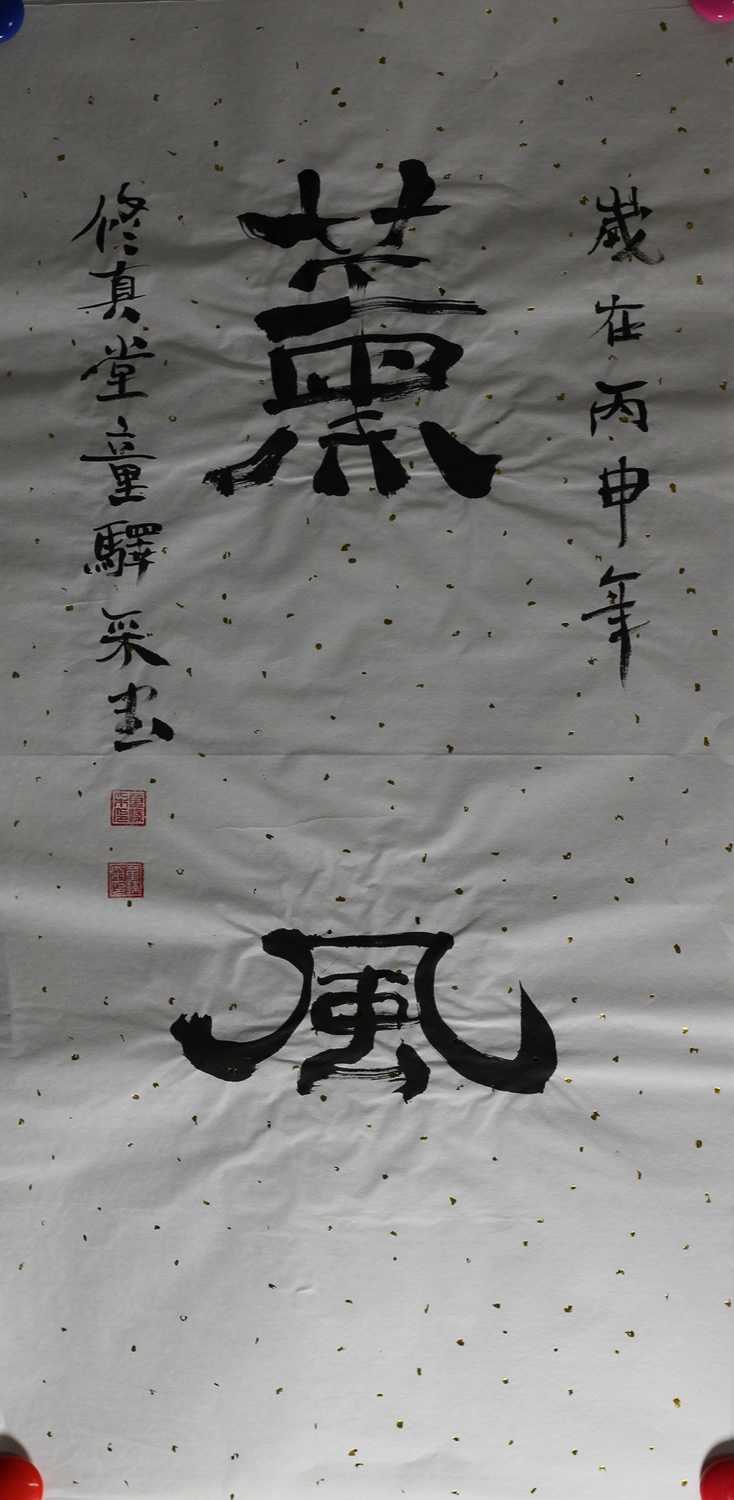 歲在丙申年
薰風
修真堂童驛采書